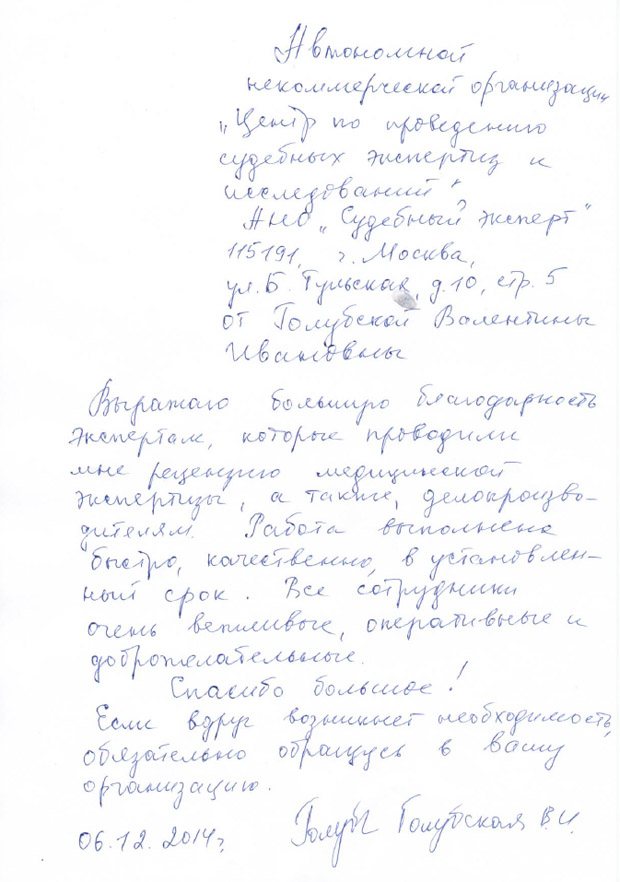 Автономной
некоммерческой организации
„Центр по проведению
судебных экспертиз и
исследований",
АНО „Судебный эксперт"
115191, г. Москва,
ул. Б. Тульская, д.10, стр. 5
от Голубской Валентины
Ивановны
Выражаю большую благодарность
экспертам, которые проводили
мне рецензию медицинской
экспертизы, а также, делопроизво-
дителям. Работа выполнена
быстро, качественно, в установлен-
ный срок. Все сотрудники
очень вежливые, оперативные и
доброжелательные.
Спасибо большое!
Если вдруг возникнет необходимость,
обязательно обращусь в вашу
организацию.
06.12.2014г. Голуб Голубская В.И.